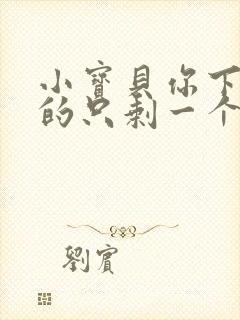 小寳貝你下
的只剩一个
劉賓